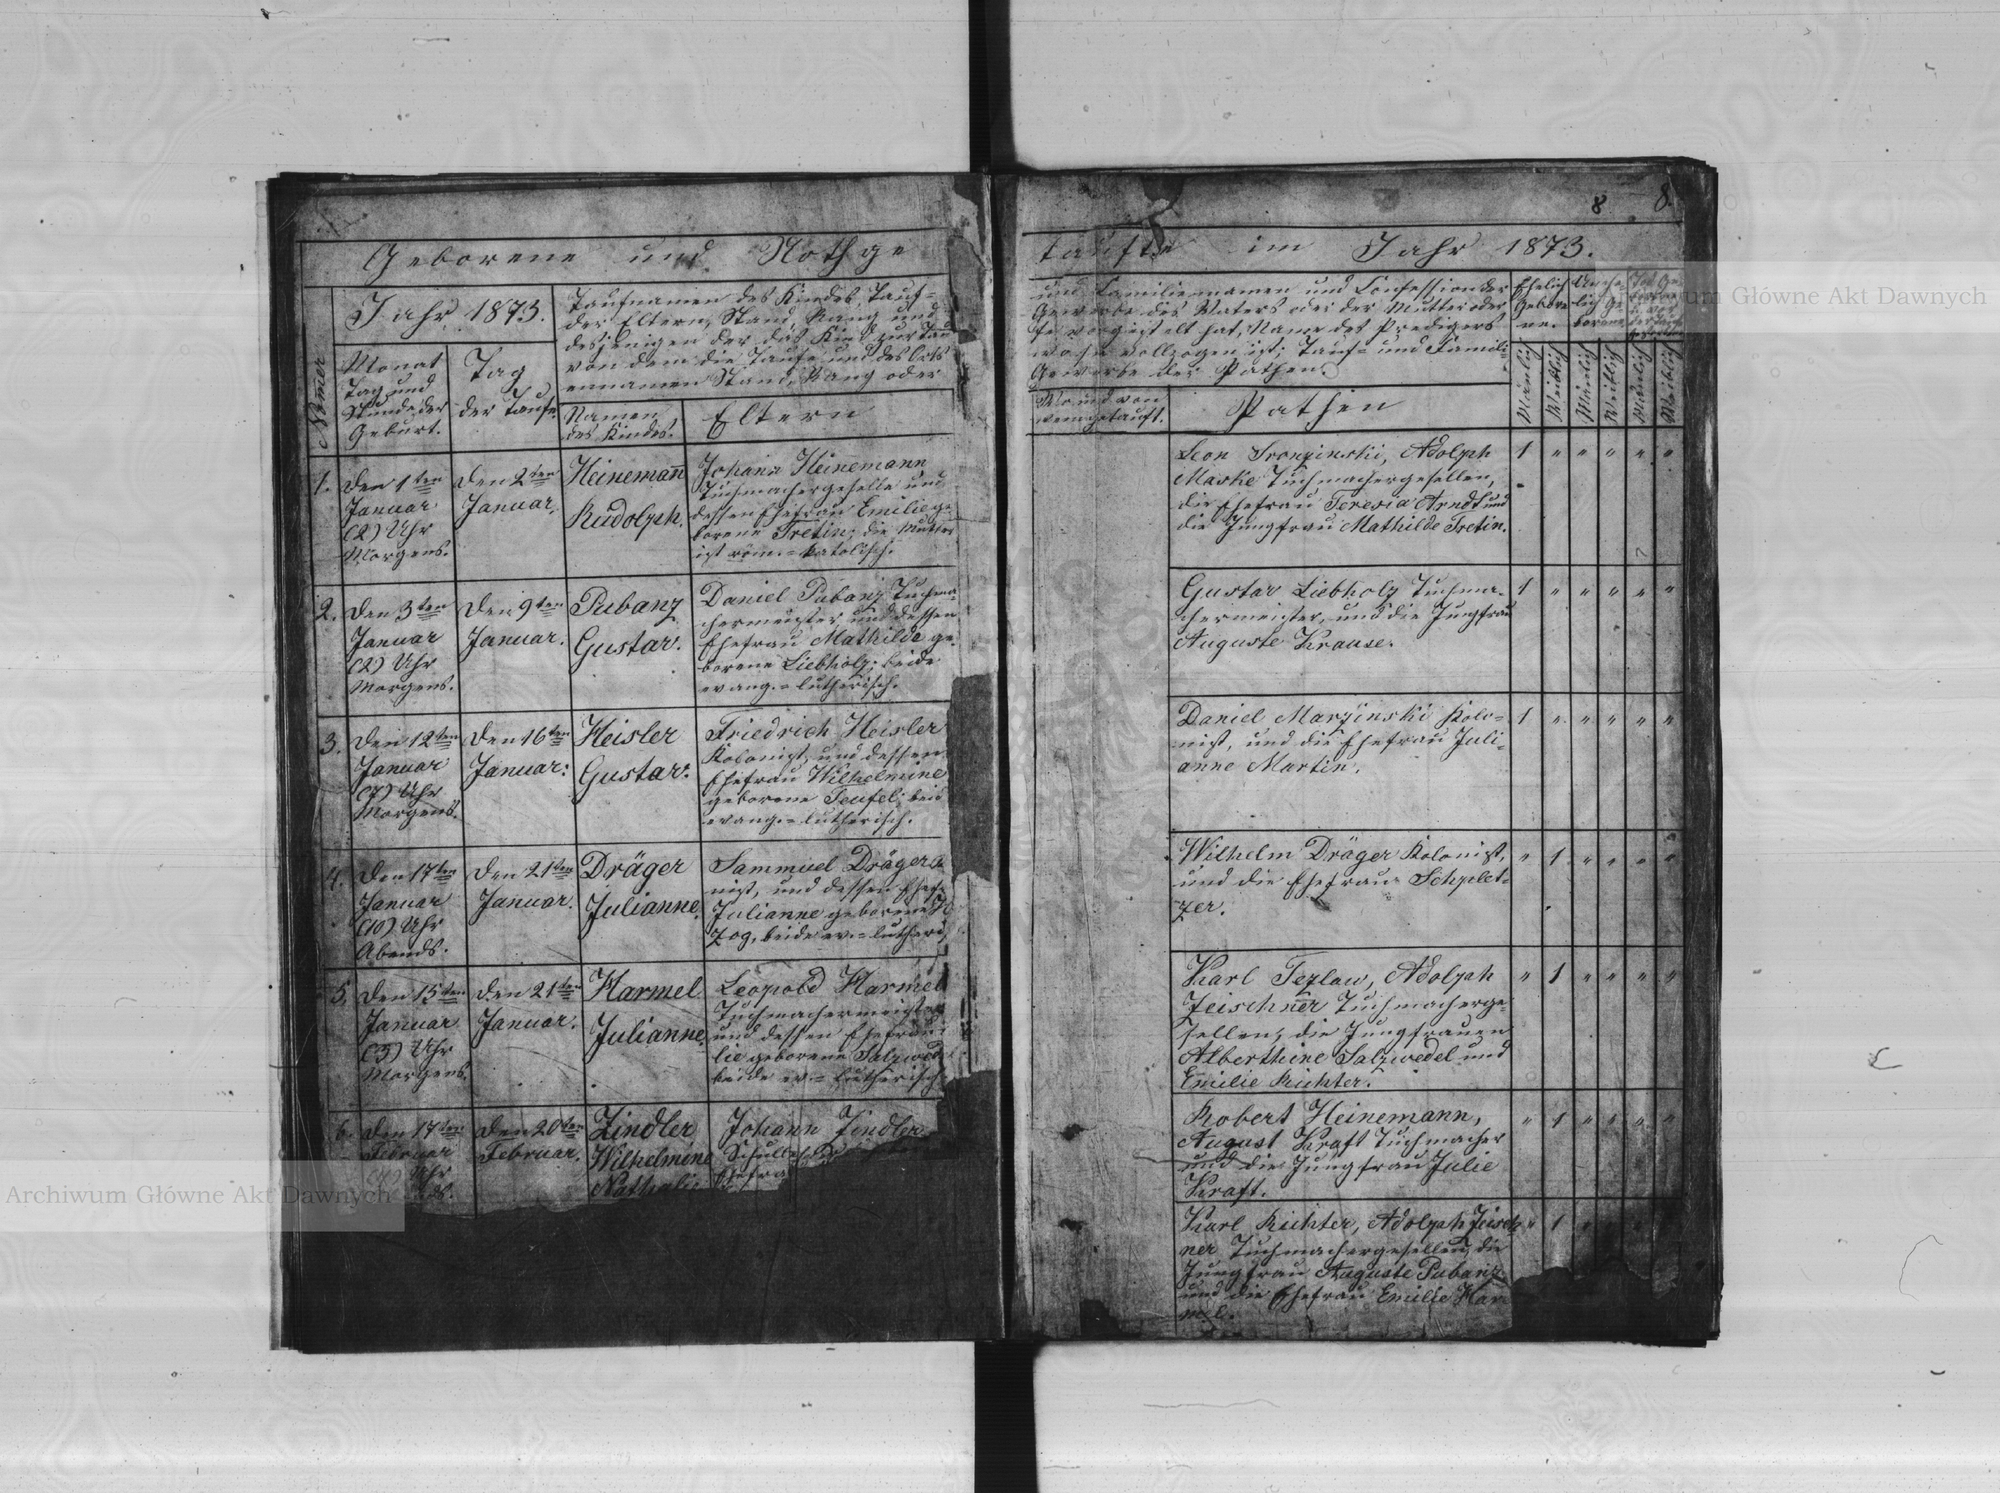 8 8.
Geborene und Nothge
taufte im Jahr 1873.
Numer
Jahr 1873.
Monat
Tag und
Stunde der
Geburt.
Tag
der Taufe.
Taufnamen des Kindes, Tauf-
der Eltern, Stand, Rang und
desjenigen der das Kind zur Tau
von dem die Taufe und des Orts
ennamen Stand, Rang oder
Namen
des Kindes.
Eltern
und Familiennamen und Confession der
Gewerbe des Vaters oder der Mutter oder
fe vorgestelt hat, Name des Predigers
wo sie vollzogen ist; Tauf- und Famili-
Gewerbe der Pathen.
Wo und von
wem getauft.
Pathen
Ehelich
Gebore-
ne.
Mänlich
Weiblich
Mänlich
Weiblich
Mänlich
Weiblich
1.
Den 1ten
Januar
(2) Uhr
Morgens.
Den 2ten
Januar.
Heinemann
Rudolph.
Johann Heinemann
Tuchmachergeselle und
dessen Ehefrau Emilie ge-
borene Tretin; die Mutter
ist röm.=katolisch.
Leon Adolph
Maske Tuchmachergesellen,
die Ehefrau Teresia Arndt und
die Jungfrau Mathilde Tretin.
1 " " " " "
2.
Den 3ten
Januar
(2) Uhr
Morgens.
Den 9ten
Januar.
Pubanz
Gustav.
Daniel Pubanz Tuchma-
chermeister, und dessen
Ehefrau Mathilde ge-
borene Liebholz; beide
evang.=lutherisch.
Gustav Liebholz Tuchma-
chermeister, und die Jungfrau
Auguste Krause.
1 " " " " "
3.
Den 12ten
Januar
(7) Uhr
Morgens.
Den 16ten
Januar:
Heisler
Gustav:
Friedrich Heisler
Kolonist, und dessen
Ehefrau Wilhelmine
geborene Teufel; beid
evang.=lutherisch.
Daniel Marzinski Kolo-
nist, und die Ehefrau Juli-
anne Martin.
1 " " " " "
4.
Den 17ten
Januar
(10) Uhr
Abends.
Den 21ten
Januar.
Dräger
Julianne.
Sammuel Dräger
nist, und dessen Ehef
Julianne geborene
zog, beide ev.=lutheri
Wilhelm Dräger Kolonist,
und die Ehefrau Schplet-
zer.
" 1 " " " "
5.
Den 15ten
Januar
(3) Uhr
Morgens.
Den 21ten
Januar.
Harmel
Julianne.
Leopold Harmel
Tuchmachermeister
und dessen Ehefrau
lie geborene Salzwed
beide ev.=lutherisch
Karl Tezlaw, Adolph
Zeischner Tuchmacherge-
sellen, die Jungfrauen
Alberthine Salzwedel und
Emilie Richter.
" 1 " " " "
6.
Den 17ten
Februar
Uhr
Den 20ten
Februar.
Zindler
Wilhelmine
Nathalie
Johann Zindler
Ehefra
Robert Heinemann,
August Kraft Tuchmacher
und die Jungfrau Julie
Kraft.
" 1 " " " "
Karl Richter, Adolph Zeisch-
ner Tuchmachergesellen, die
Jungfrau Auguste Pubanz
und die Ehefrau Emilie Har
mel.
" 1 " " "
Archiwum Główne Akt Dawnych
Archiwum Główne Akt Dawnych